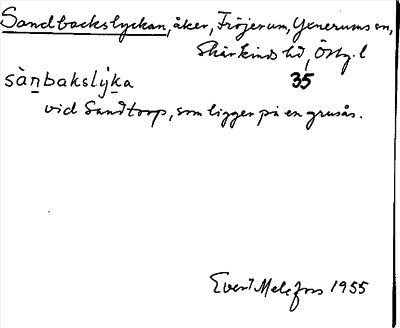 Sandbackslyckan, åker, Fröjerum, Yxnerums sn,
Skärkinds hd, Östg. l
35
sàn̲bakslýk̲a
vid Sandtorp, som ligger på en grusås.
Evert Melefors 1955